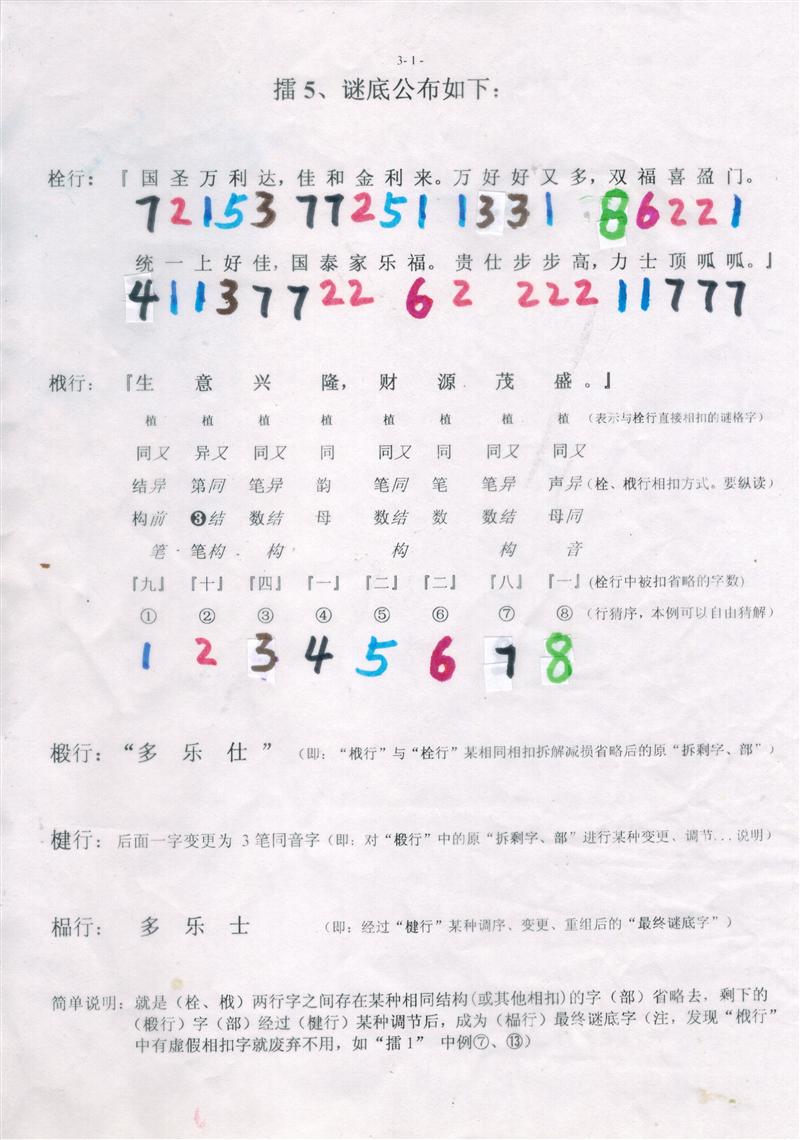 3-1-
擂5、谜底公布如下：
栓行：『国圣万利达，佳和金利来。万好好又多，双福喜盈门。
7 2 1 5 3 7 7 2 5 1 1 3 3 1 8 6 2 2 1
统一上好佳，国泰家乐福。贵仕步步高，力士顶呱呱。』
4 1 1 3 7 7 2 2 6 2 2 2 2 1 1 7 7 7
桟行：『生 意 兴 隆， 财 源 茂 盛。』
植 植 植 植 植 植 植 植 （表示与栓行直接相扣的谜格字）
同又 异又 同又 同 同又 同 同又 同又
结异 第同 笔异 韵 笔同 笔 笔异 声异 （栓、桟行相扣方式。要纵读）
构前 ❸结 数结 母 数结 数 数结 母同
笔 笔构 构 构 构 音
『九』 『十』 『四』 『一』 『二』 『二』 『八』 『一』 （栓行中被扣省略的字数)
① ② ③ ④ ⑤ ⑥ ⑦ ⑧ （行猜序，本例可以自由猜解）
1 2 3 4 5 6 7 8
椴行：“多 乐 仕 ” （即：“桟行”与“栓行”某相同相扣拆解减损省略后的原“拆剩字、部”）
楗行：后面一字变更为 3 笔同音字（即：对“椴行”中的原“拆剩字、部”进行某种变更、调节...说明）
榀行： 多 乐 士 （即：经过“楗行”某种调序、变更、重组后的“最终谜底字”）
简单说明：就是（栓、桟）两行字之间存在某种相同结构(或其他相扣)的字（部）省略去，剩下的
（椴行）字（部）经过（楗行）某种调节后，成为（榀行）最终谜底字（注，发现“桟行”
中有虚假相扣字就废弃不用，如“擂1” 中例⑦、⑬）